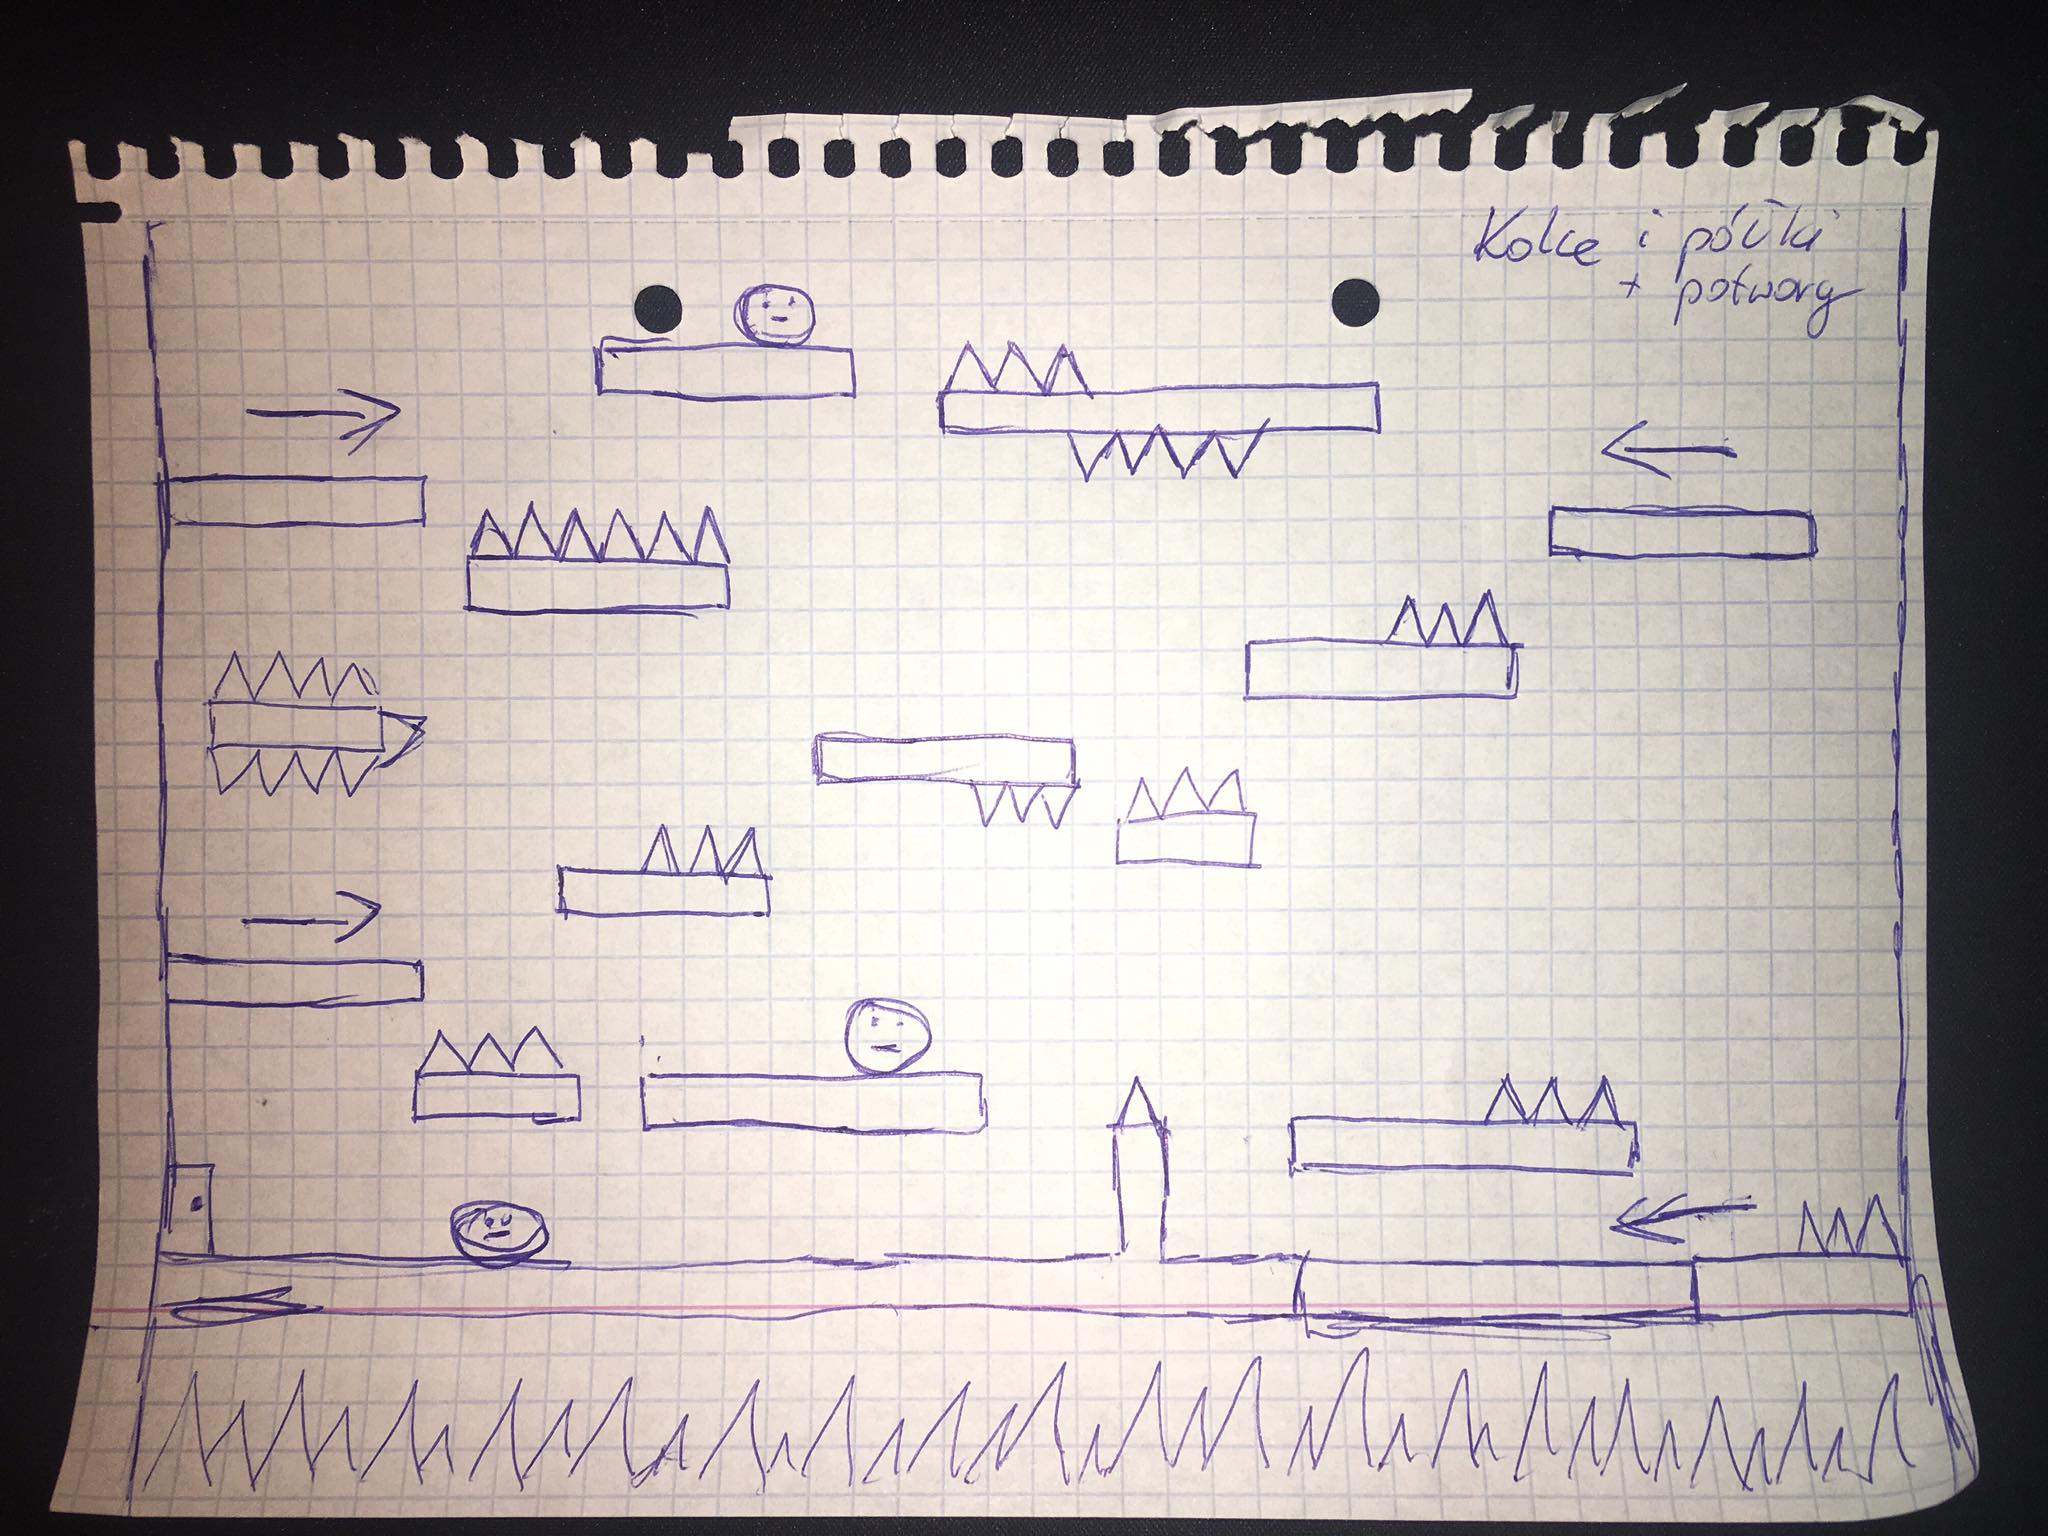 Kolce i półki
+ potwory